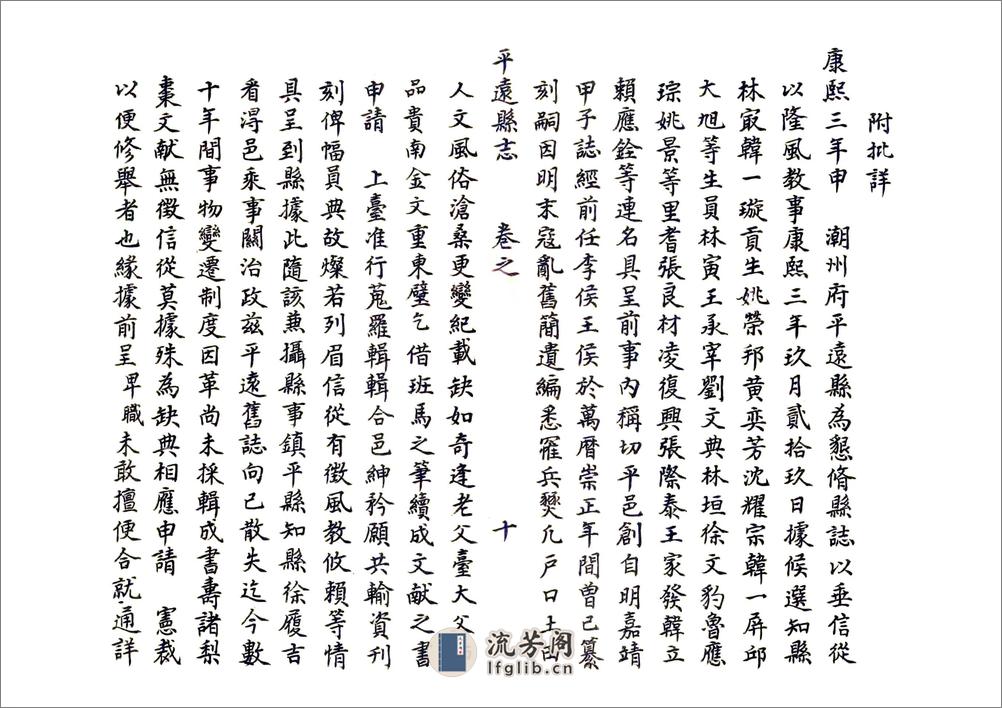 附批詳
康熙三年申　潮州府平遠縣為懇脩縣誌以垂信從
以隆風教事康熙三年玖月貳拾玖日據候選知縣
林㝡韓一璇貢生姚榮邦黄奕芳沈耀宗韓一屏邱
大旭等生員林寅王承宰劉文典林垣徐文豹魯應
琮姚景等里耆張良材凌復興張際泰王家發韓立
賴應銓等連名具呈前事内稱切平邑創自明嘉靖
甲子誌經前任李侯王侯於萬曆崇正年間曾已纂
刻嗣因明末寇亂舊簡遺編悉罹兵燹凢户口土
平遠縣志　卷之　十
人文風俗滄桑更變紀載缺如奇逢老父臺大父
品貴南金文重東壁乞借班馬之筆續成文献之書
申請　上臺准行蒐羅輯輯合邑紳矜願共輸資刊
刻俾幅員典故燦若列眉信從有徵風教攸賴等情
具呈到縣據此隨該兼攝縣事鎮平縣知縣徐履吉
看淂邑乘事關治政兹平遠舊誌向已散失迄今數
十年間事物變遷制度因革尚未採輯成書壽諸梨
棗文献無徵信從莫據殊為缺典相應申請　憲裁
以便修舉者也緣據前呈卑職未敢擅便合就通詳
流芳阁
lfglib.cn